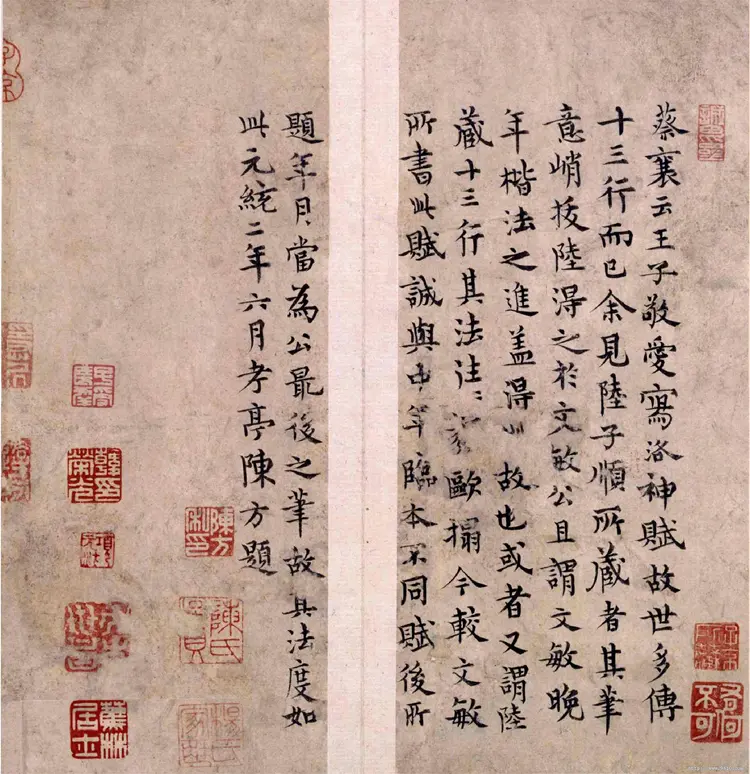 蔡襄云王子敬愛寫洛神賦故世多傳
十三行而已余見陸子順所藏者其筆
意峭拔陸淂之於文敏公且謂文敏晚
年楷法之進盖得此故也或者又謂陸
藏十三行其法注〻歐搨今較文敏
所書此賦誠與中年臨本不同賦後所
題年月當為公最後之筆故其法度如
此元統二年六月孝亭陳方題
陳方
陳氏
蕉林居士